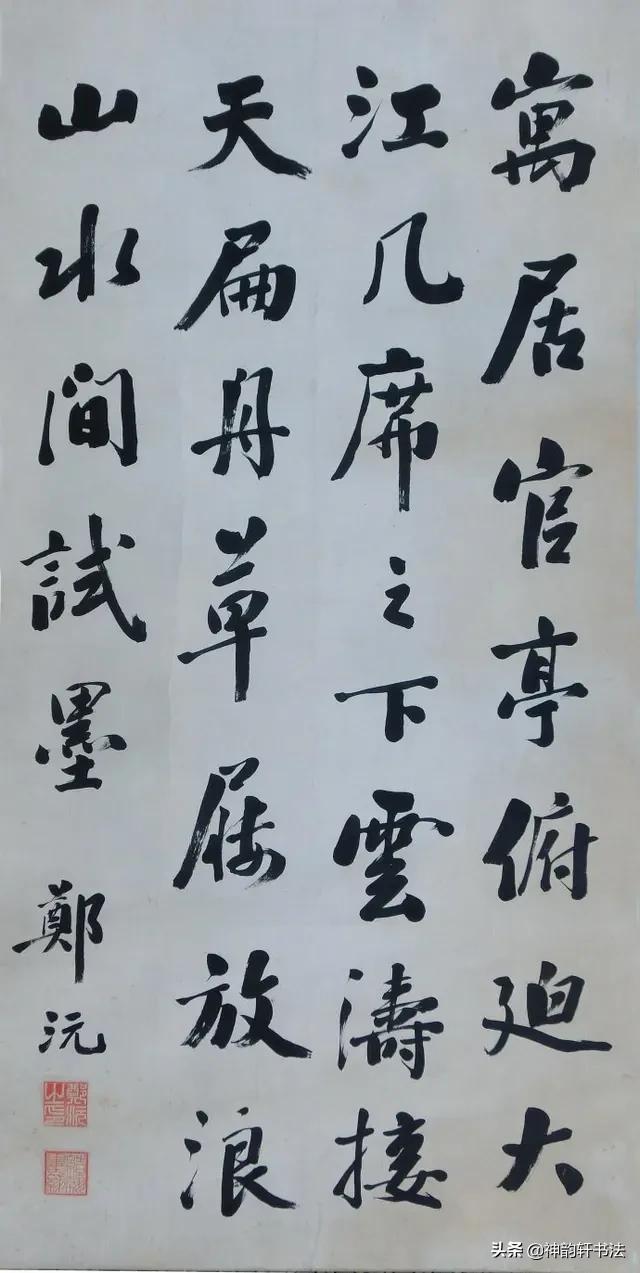 寓居官亭俯廹大
江几席之下雲濤接
天扁舟草屨放浪
山水間試墨 鄭沅
鄭沅之印
头条 @神韵轩书法